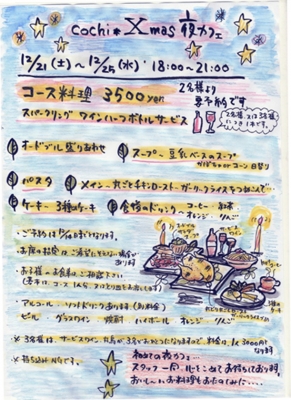 cochi* Xmas 夜カフェ
12/21(土)~12/25(水)・18:00~21:00
コース料理 3500yen
2名様より
要予約です
スパークリングワイン1つボトルサービス
2名様、又は3名様
につき1本です。
オードブル盛りあわせ
スープ〜豆乳ベースのスープ
かぼちゃorコーン 日替り
パスタ
メイン〜丸ごとチキンロースト・ガーリックライスをつめこんで
ケーキ 3種のケーキ
食後のドリンク〜コーヒー 紅茶
オレンジ りんご
・ご予約は
になります。
・お席の指定はご希望にそえない場合が
あります
・お子様のお食事はご相談下さい
アルコール・ソフトドリンクあります(別料金)
ビール グラスワイン 焼酎 ハイボール オレンジ りんご
※3名様は、サービスワイン
3000円
になります
※持ち込みNGです。
初めての夜カフェ…
スタッフ一同、心をこめてお待ちしております。
おいしいお料理もおたのしみに…